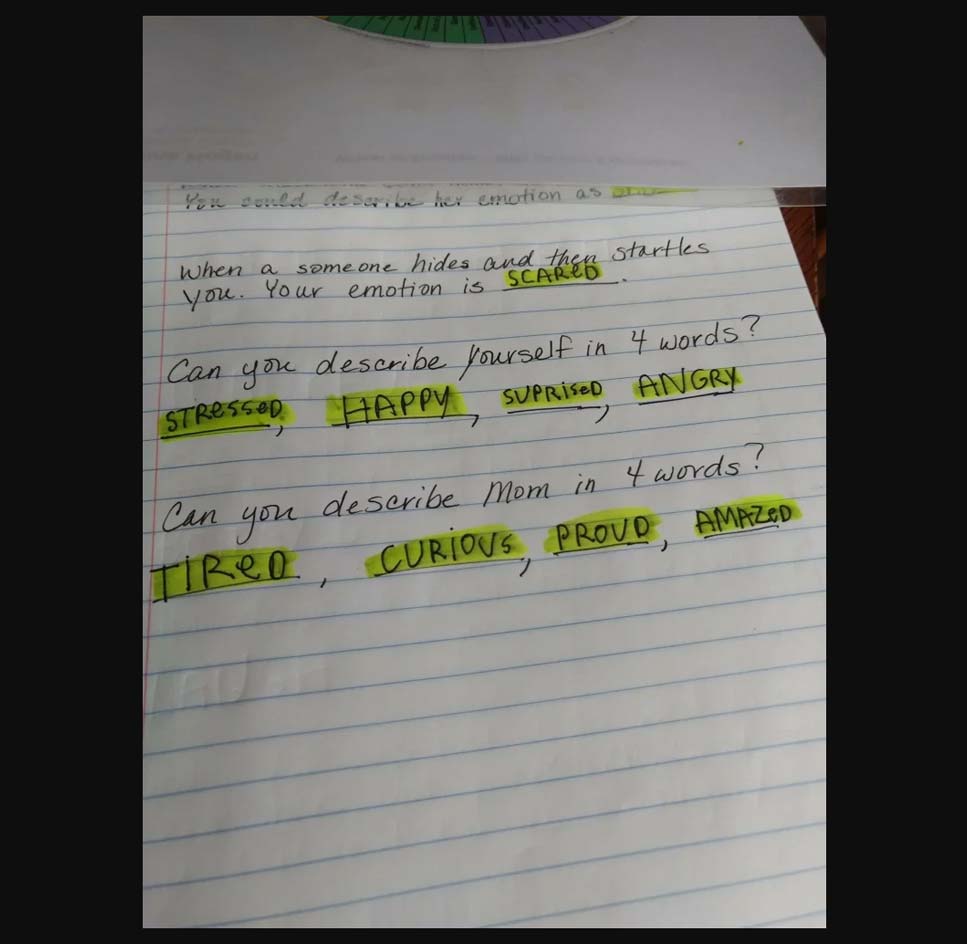 You could describe her emotion as
When a someone hides and then startles
you. Your emotion is SCAReD.
Can you describe yourself in 4 words?
STResseD, HAPPY, SUPRiSeD, ANGRY
Can you describe Mom in 4 words?
TiReD, CURiOUs, PROUD, AMAZeD